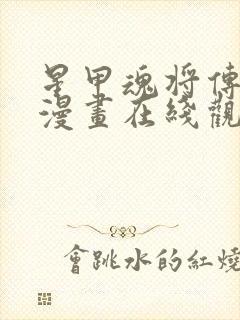 星甲魂將傳
漫畫在綫觀
會跳水的紅燒